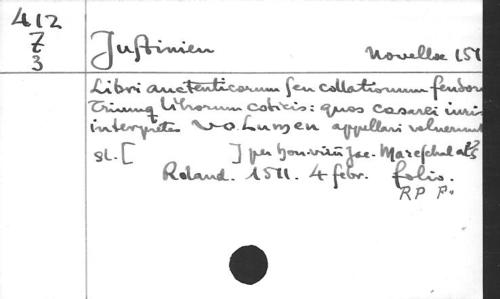 412
Z
3
Justinien
Novellae 151
Libri auctenticorum seu collationum feudor
Triumq librorum codicis: quos cesarei iuris
interpretes volumen appellari voluerunt
sl. [ ] per hon. virū Jac. Mareschal als
Roland. 1511. 4 febr. folio.
RP F.